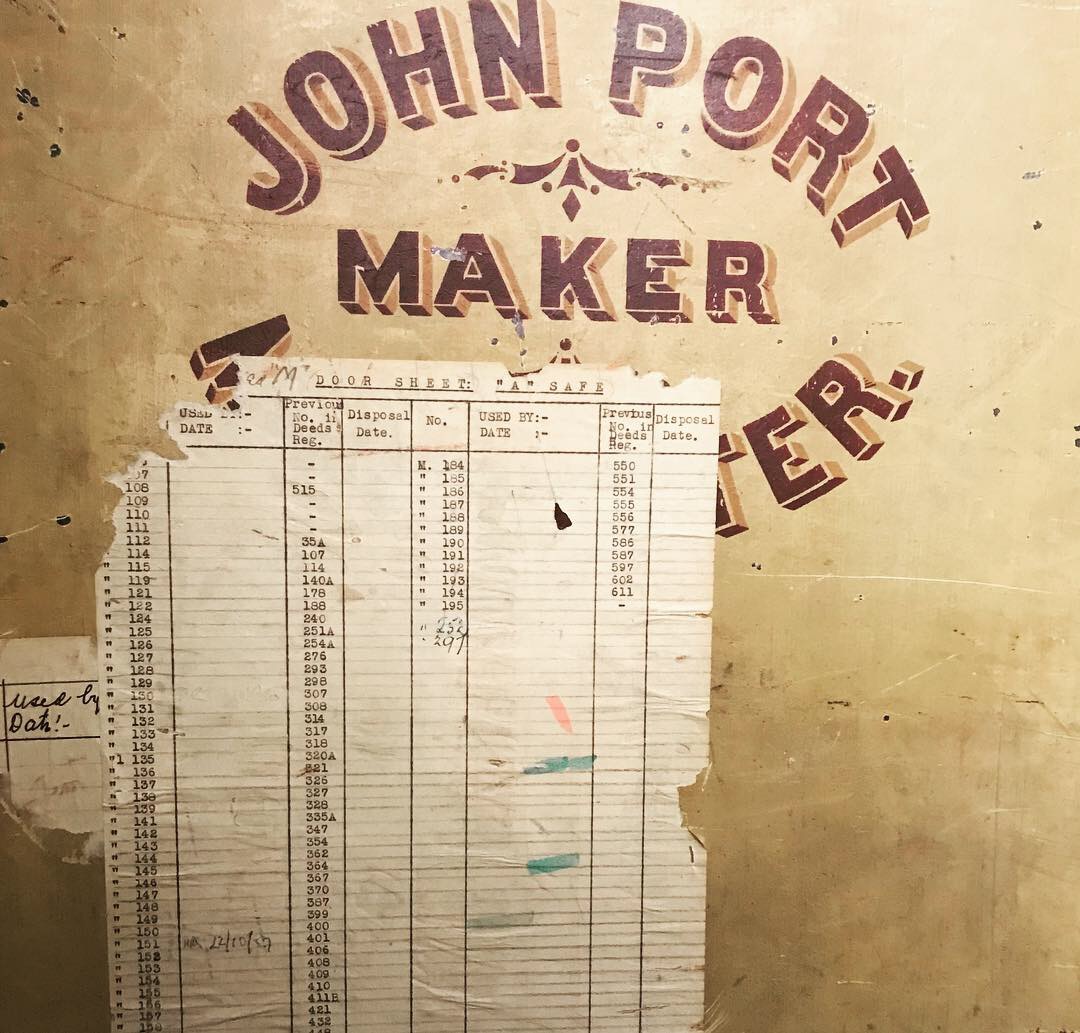 JOHN PORT
MAKER
TER.
"M" DOOR SHEET: "A" SAFE
USED BY:- Previous No. in Deeds Reg. Disposal Date. No. USED BY:- Previous No. in Deeds Reg. Disposal Date.
DATE :- DATE :-
- M. 184 550
07 - " 185 551
108 515 " 186 554
109 - " 187 555
110 - " 188 556
111 - " 189 577
112 35A " 190 586
114 107 " 191 587
" 115 114 " 192 597
" 119 140A " 193 602
" 121 178 " 194 611
" 122 188 " 195 -
" 124 240 " 252
" 125 251A " 297
" 126 254A
" 127 276
" 128 293
" 129 298
" 130 307
" 131 308
" 132 314
" 133 317
" 134 318
"1 135 320A
" 136 321
" 137 326
" 138 327
" 139 328
" 141 335A
" 142 347
" 143 354
" 144 362
" 145 364
" 146 367
" 147 370
" 148 387
" 149 399
" 150 400
" 151 22/10/57 401
" 152 406
" 153 408
" 154 409
" 155 410
" 156 411B
" 157 421
" 158 432
448
Used by
Date:-